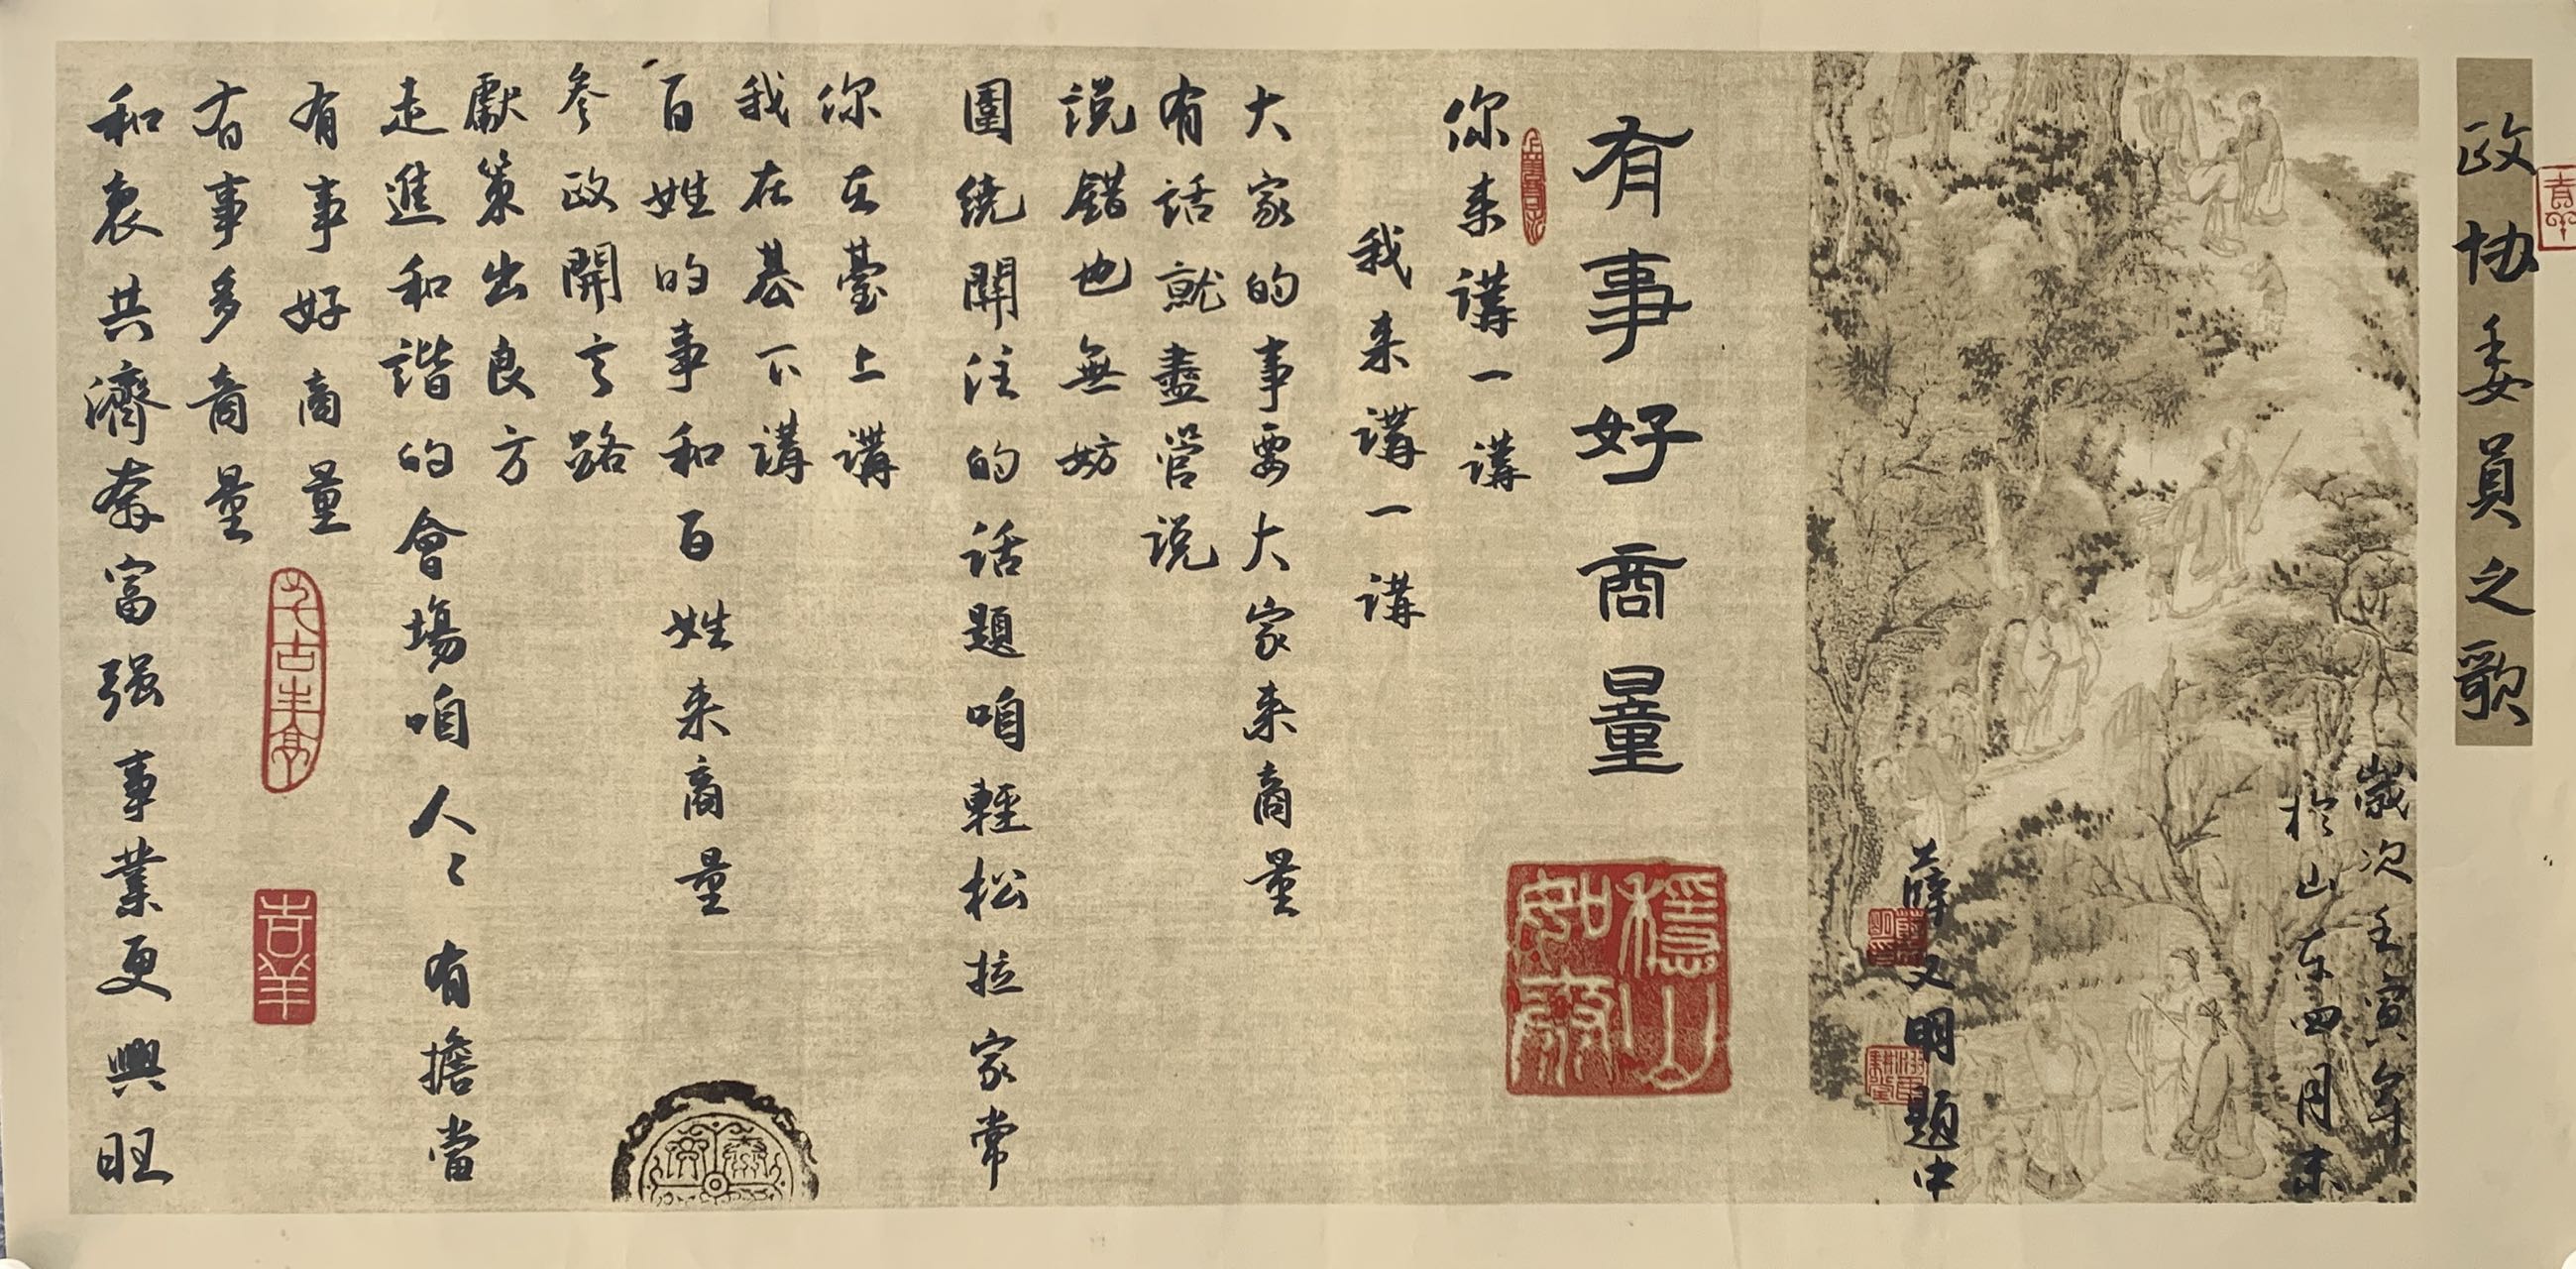 政协委員之歌
歲次壬寅年
於山东四月末
薛文明题中
有事好商量
你来講一講
我来講一講
大家的事要大家来商量
有話就盡管说
说錯也無妨
圍绕關注的话题咱輕松拉家常
你在臺上講
我在基下講
百姓的事和百姓来商量
参政開言路
獻策出良方
走進和諧的會場咱人々有擔當
有事好商量
有事多商量
和衷共濟奔富强事業更興旺
吉羊